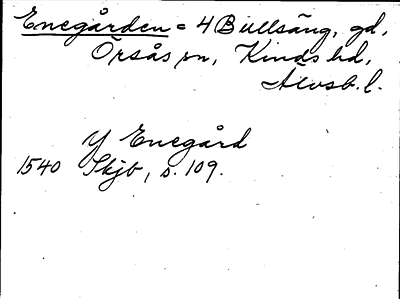 Enegården = 4 Bullsäng, gd,
Örsås sn, Kinds hd,
Älvsb. l.
Y Enegård
1540 Skjb, s. 109.